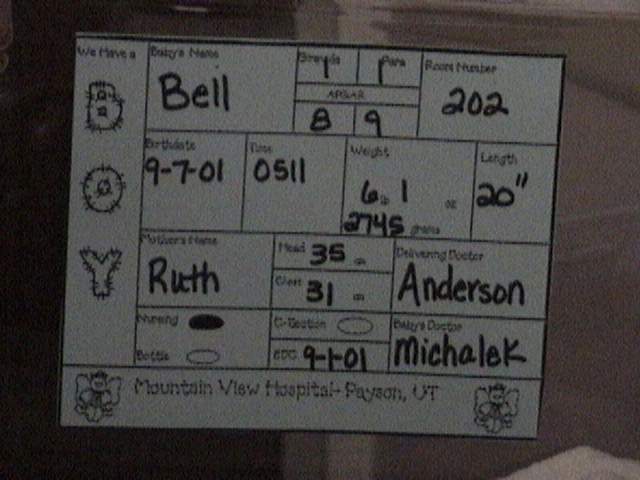 We Have a
BOY
Baby's Name
Bell
Gravida 1
Para 1
APGAR
8 9
Room Number
202
Birthdate
9-7-01
Time
0511
Weight
6 lb 1 oz
2745 grams
Length
20"
Mother's Name
Ruth
Head 35 cm
Chest 31 cm
Delivering Doctor
Anderson
Nursing
Bottle
C-Section
EDC 9-1-01
Baby's Doctor
Michalek
Mountain View Hospital- Payson, UT